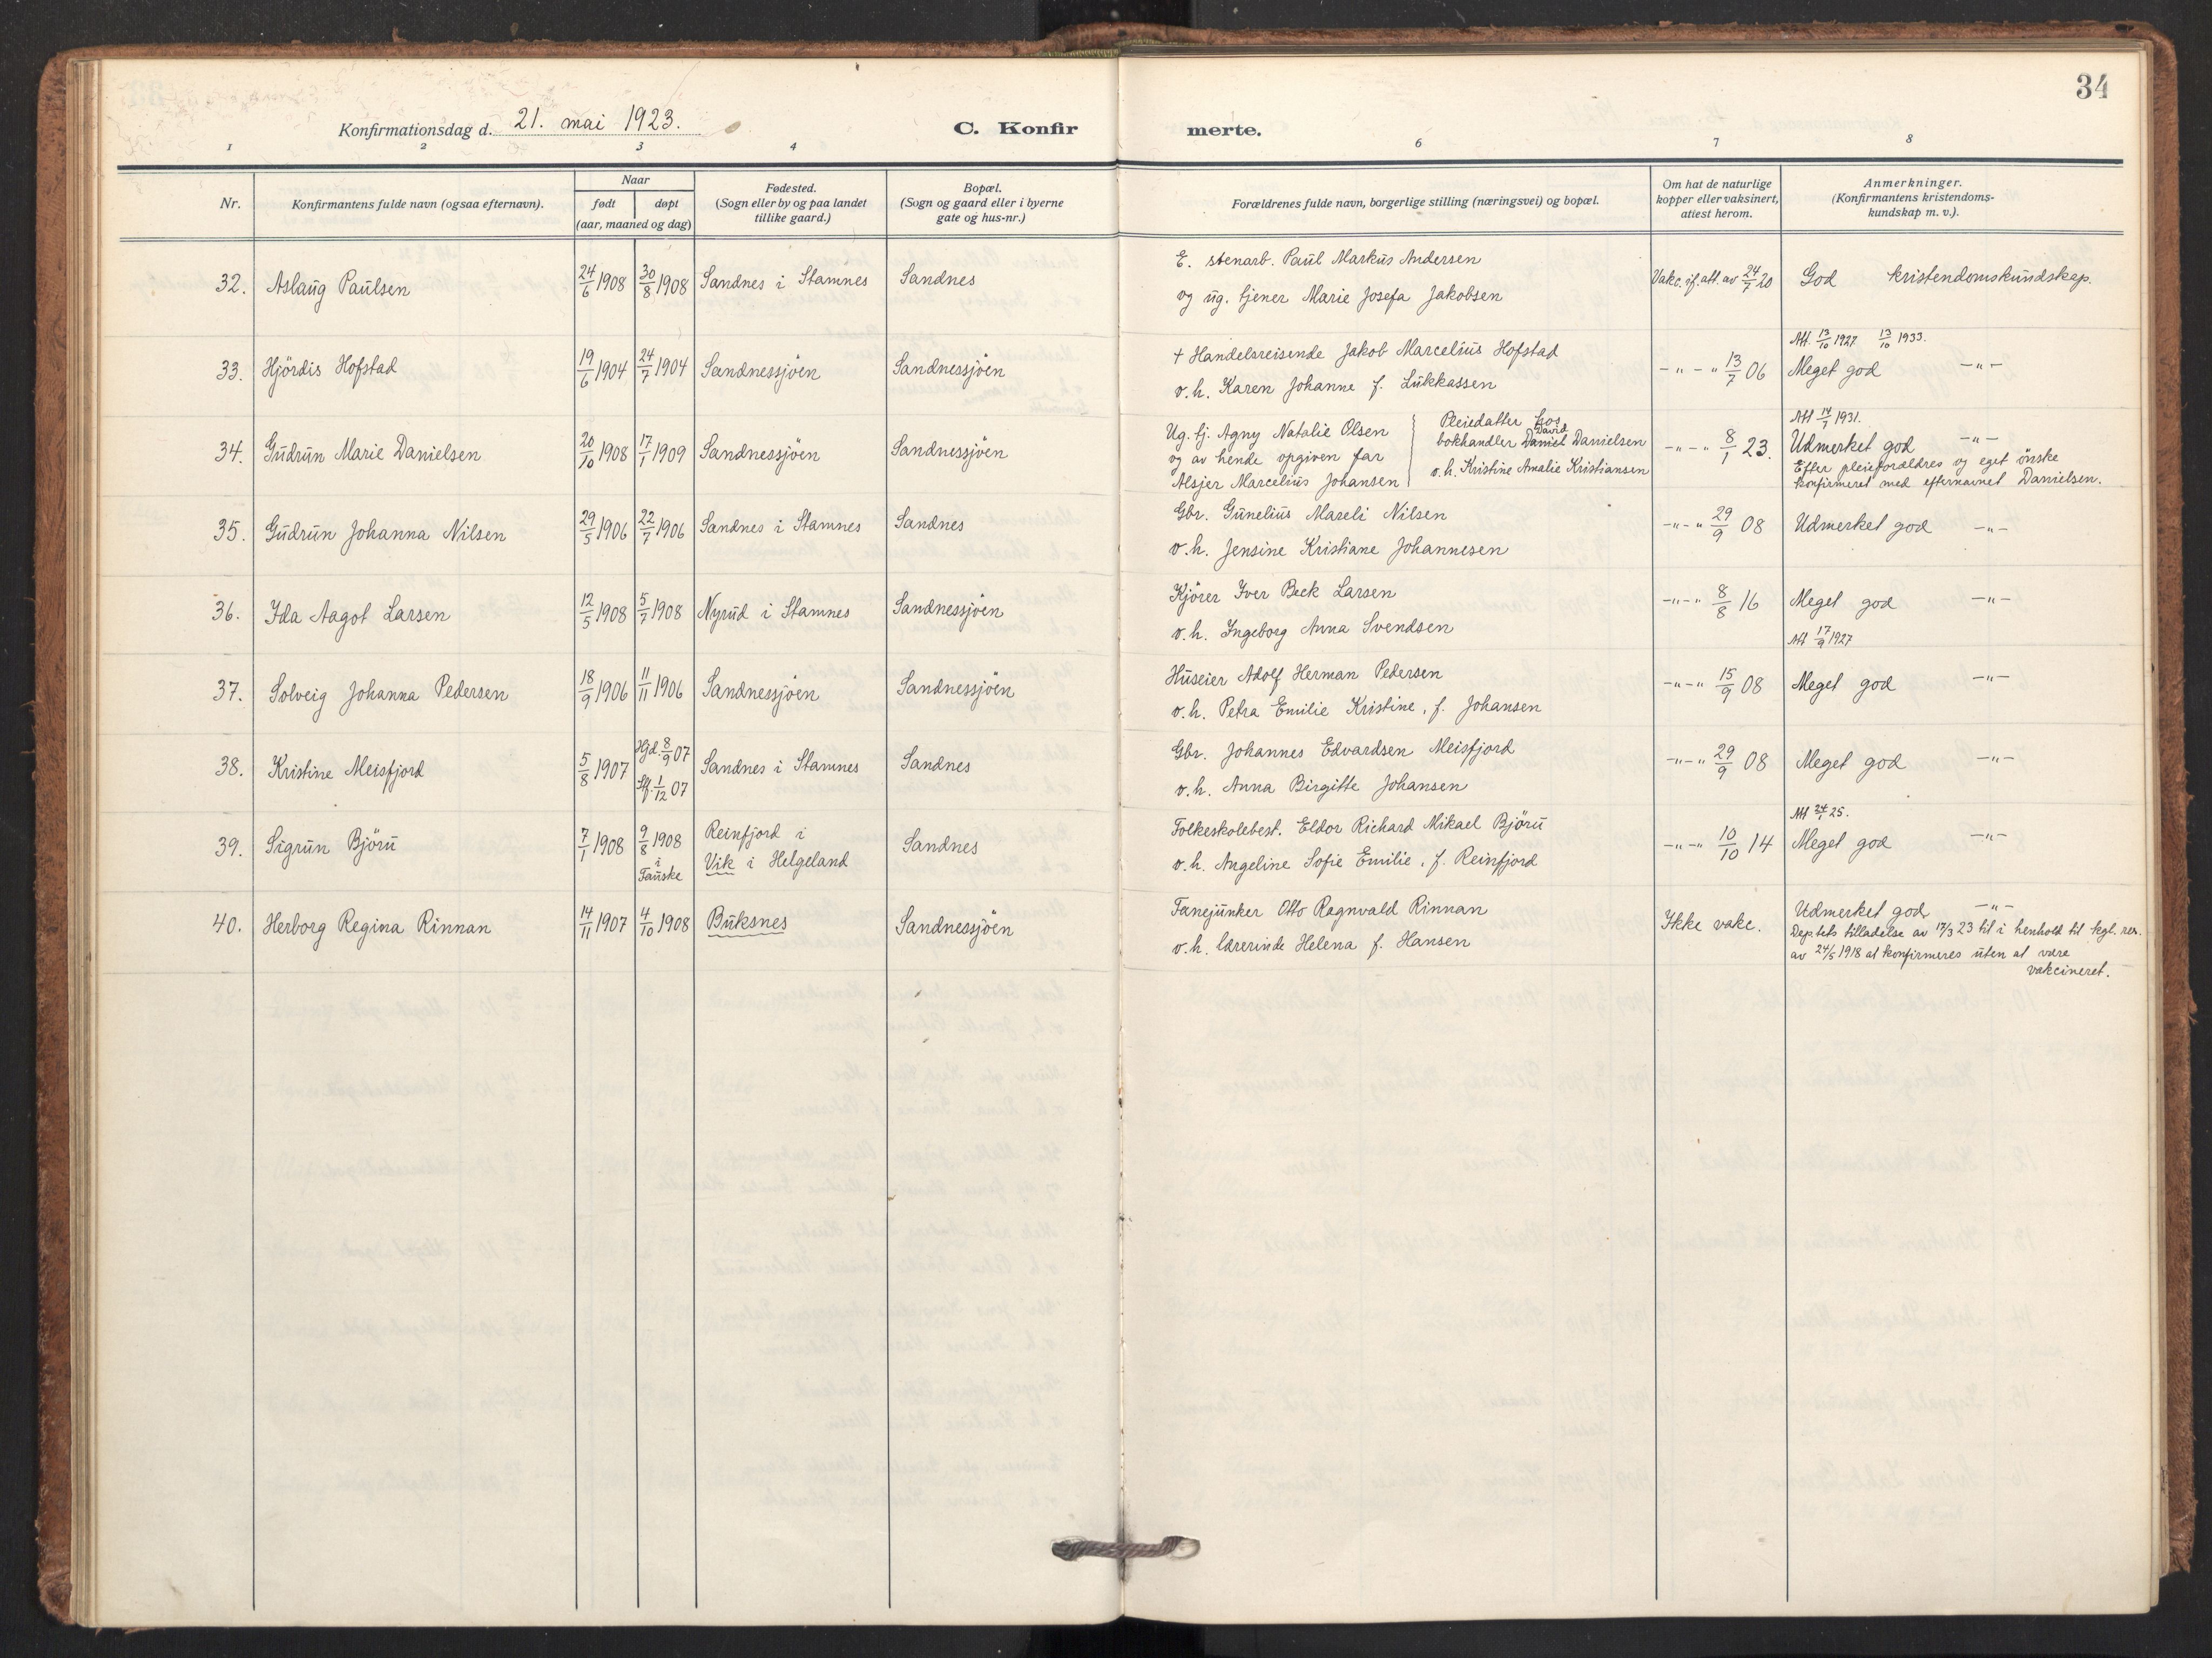 34
Konfirmationsdag d. 21. mai 1923. C. Konfirmerte.
1 2 3 4 6 7 8
Nr. Konfirmantens fulde navn (ogsaa efternavn). Naar født døpt (aar, maaned og dag) Fødested. (Sogn eller by og paa landet tillike gaard.) Bopæl. (Sogn og gaard eller i byerne gate og hus-nr.) Forældrenes fulde navn, borgerlige stilling (næringsvei) og bopæl. Om hat de naturlige kopper eller vaksinert, atiest herom. Anmerkninger. (Konfirmantens kristendoms-kundskap m. v.).
E. stenarb. Paul Markus Andersen
32. Aslaug Paulsen 24/6 1908 30/8 1908 Sandnes i Stamnes Sandnes Vakc. if. att. av 24/7 20 God kristendomskundskap.
og ug. tjener Marie Josefa Jakobsen
Att. 13/10 1927 13/10 1933.
† Handelsreisende Jakob Marcelius Hofstad
33. Hjördis Hofstad 19/6 1904 24/7 1904 Sandnessjöen Sandnessjöen -"-" 13/7 06 Meget god -"-
v. h. Karen Johanne f. Lukkassen
Att 14/1 1931.
Ug. tj. Agny Natalie Olsen Pleiedatter hos
David
34. Gudrun Marie Danielsen 20/10 1908 17/1 1909 Sandnessjöen Sandnessjöen og av hende opgiven far bokhandler Daniel Danielsen -"-" 8/1 23. Udmerket god -"-
Alsjer Marcelius Johansen v. h. Kristine Amalie Kristiansen Efter pleieforældres og eget önske
konfirmeret med efternavnet Danielsen.
Gbr. Gunelius Mareli Nilsen
35. Gudrun Johanna Nilsen 29/5 1906 22/7 1906 Sandnes i Stamnes Sandnes -"-" 29/9 08 Udmerket god -"-
v. h. Jensine Kristiane Johannesen
Kjörer Iver Beck Larsen
36. Ida Aagot Larsen 12/5 1908 5/7 1908 Nyrud i Stamnes Sandnessjöen -"-" 8/8 16 Meget god -"-
v. h. Ingeborg Anna Svendsen
Att 17/9 1927
Huseier Adolf Herman Pedersen
37. Solveig Johanna Pedersen 18/9 1906 11/11 1906 Sandnessjöen Sandnessjöen -"-" 15/9 08 Meget god -"-
v. h. Petra Emilie Kristine, f. Johansen
Hjd. 8/9 07
Gbr. Johannes Edvardsen Meisfjord
38. Kristine Meisfjord 5/8 1907 Stf. 1/12 07 Sandnes i Stamnes Sandnes -"-" 29/9 08 Meget god -"-
v. h. Anna Birgitte Johansen
Folkeskolebest. Eldor Richard Mikael Björu
39. Sigrun Björu 7/1 1908 9/8 1908 i Fauske Reinfjord i Vik i Helgeland Sandnes -"-" 10/10 14 Meget god -"-
v. h. Angeline Sofie Emilie, f. Reinfjord
Fanejunker Otto Ragnvald Rinnan
40. Herborg Regina Rinnan 14/11 1907 4/10 1908 Buksnes Sandnessjöen Ikke vakc. Udmerket god -"-
v. h. lærerinde Helena f. Hansen
Dep.tets tilladelse av 17/3 23 til i henhold til kgl. res.
av 24/5 1918 at konfirmeres uten at være
vakcineret.